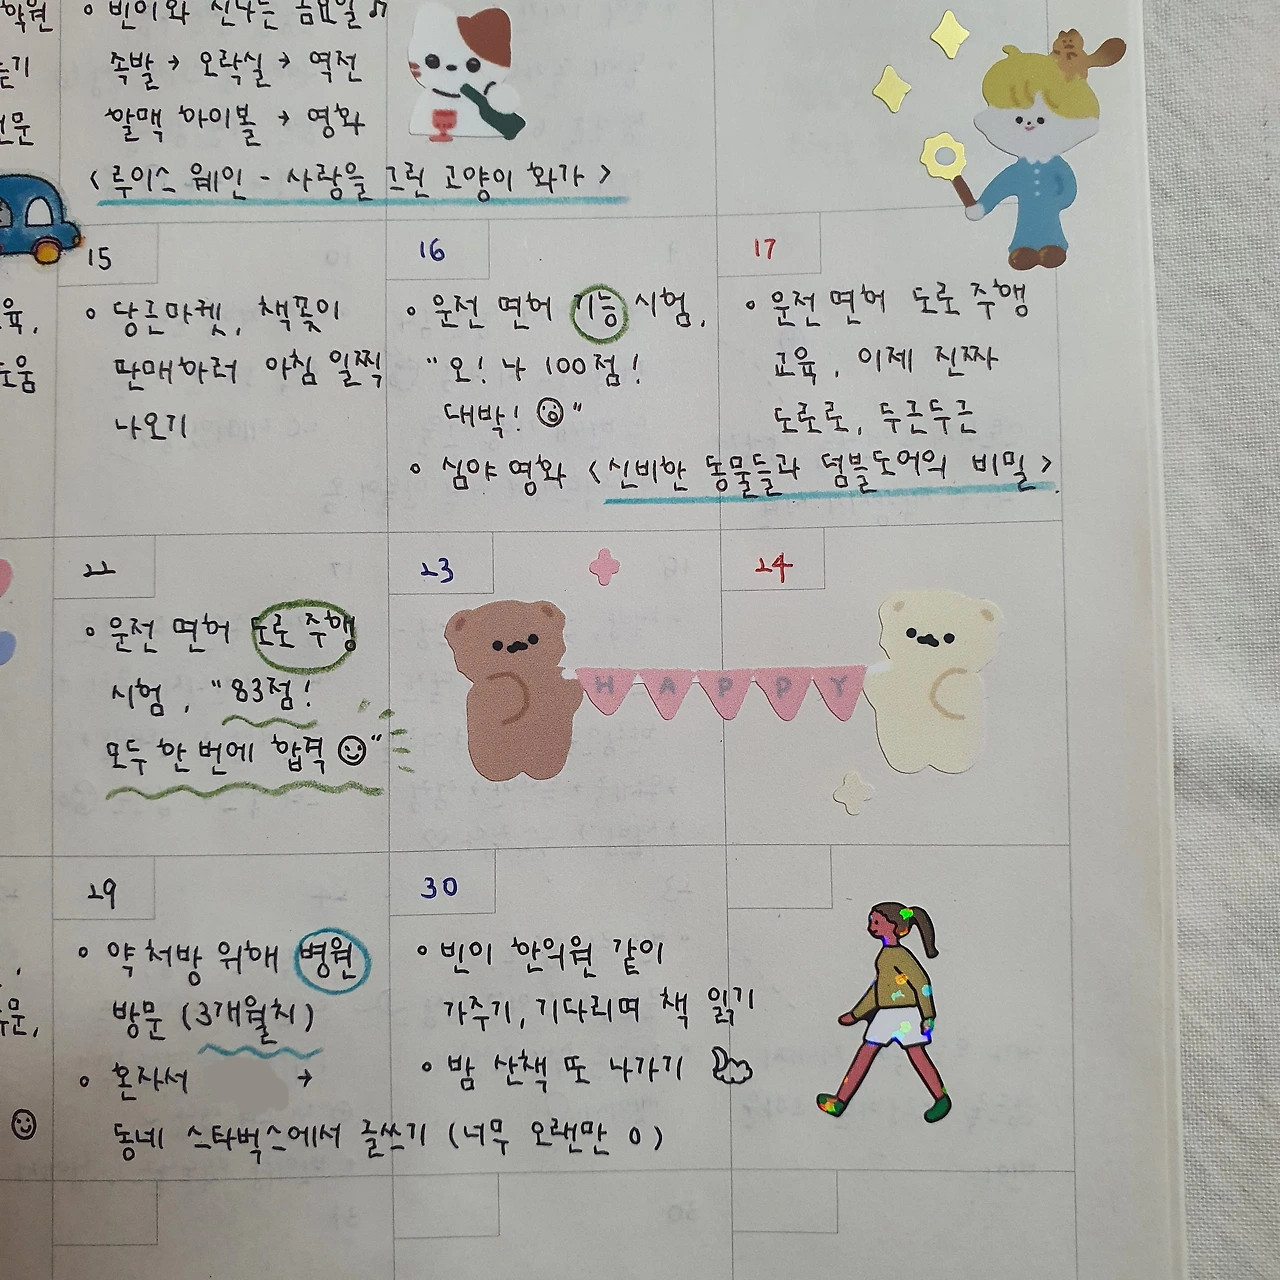 학원
빈이와 신나는 금요일♫
족발 → 오락실 → 역전
할맥 하이볼 → 영화
<루이스 웨인 - 사랑을 그린 고양이 화가>
15
당근마켓, 책꽂이
판매하러 아침 일찍
나오기
16
운전 면허 기능 시험.
"오! 나 100점!
대박! "
심야 영화 <신비한 동물들과 덤블도어의 비밀>.
17
운전 면허 도로 주행
교육, 이제 진짜
도로로, 두근두근
육,
도움
22
운전 면허 도로 주행
시험, "83점!
모두 한 번에 합격 ☺"
23
24
HAPPY
29
약 처방 위해 병원
방문 (3개월치)
혼자서 →
동네 스타벅스에서 글쓰기 (너무 오랜만 0)
30
빈이 한의원 같이
가주기, 기다리며 책 읽기
밤 산책 또 나가기